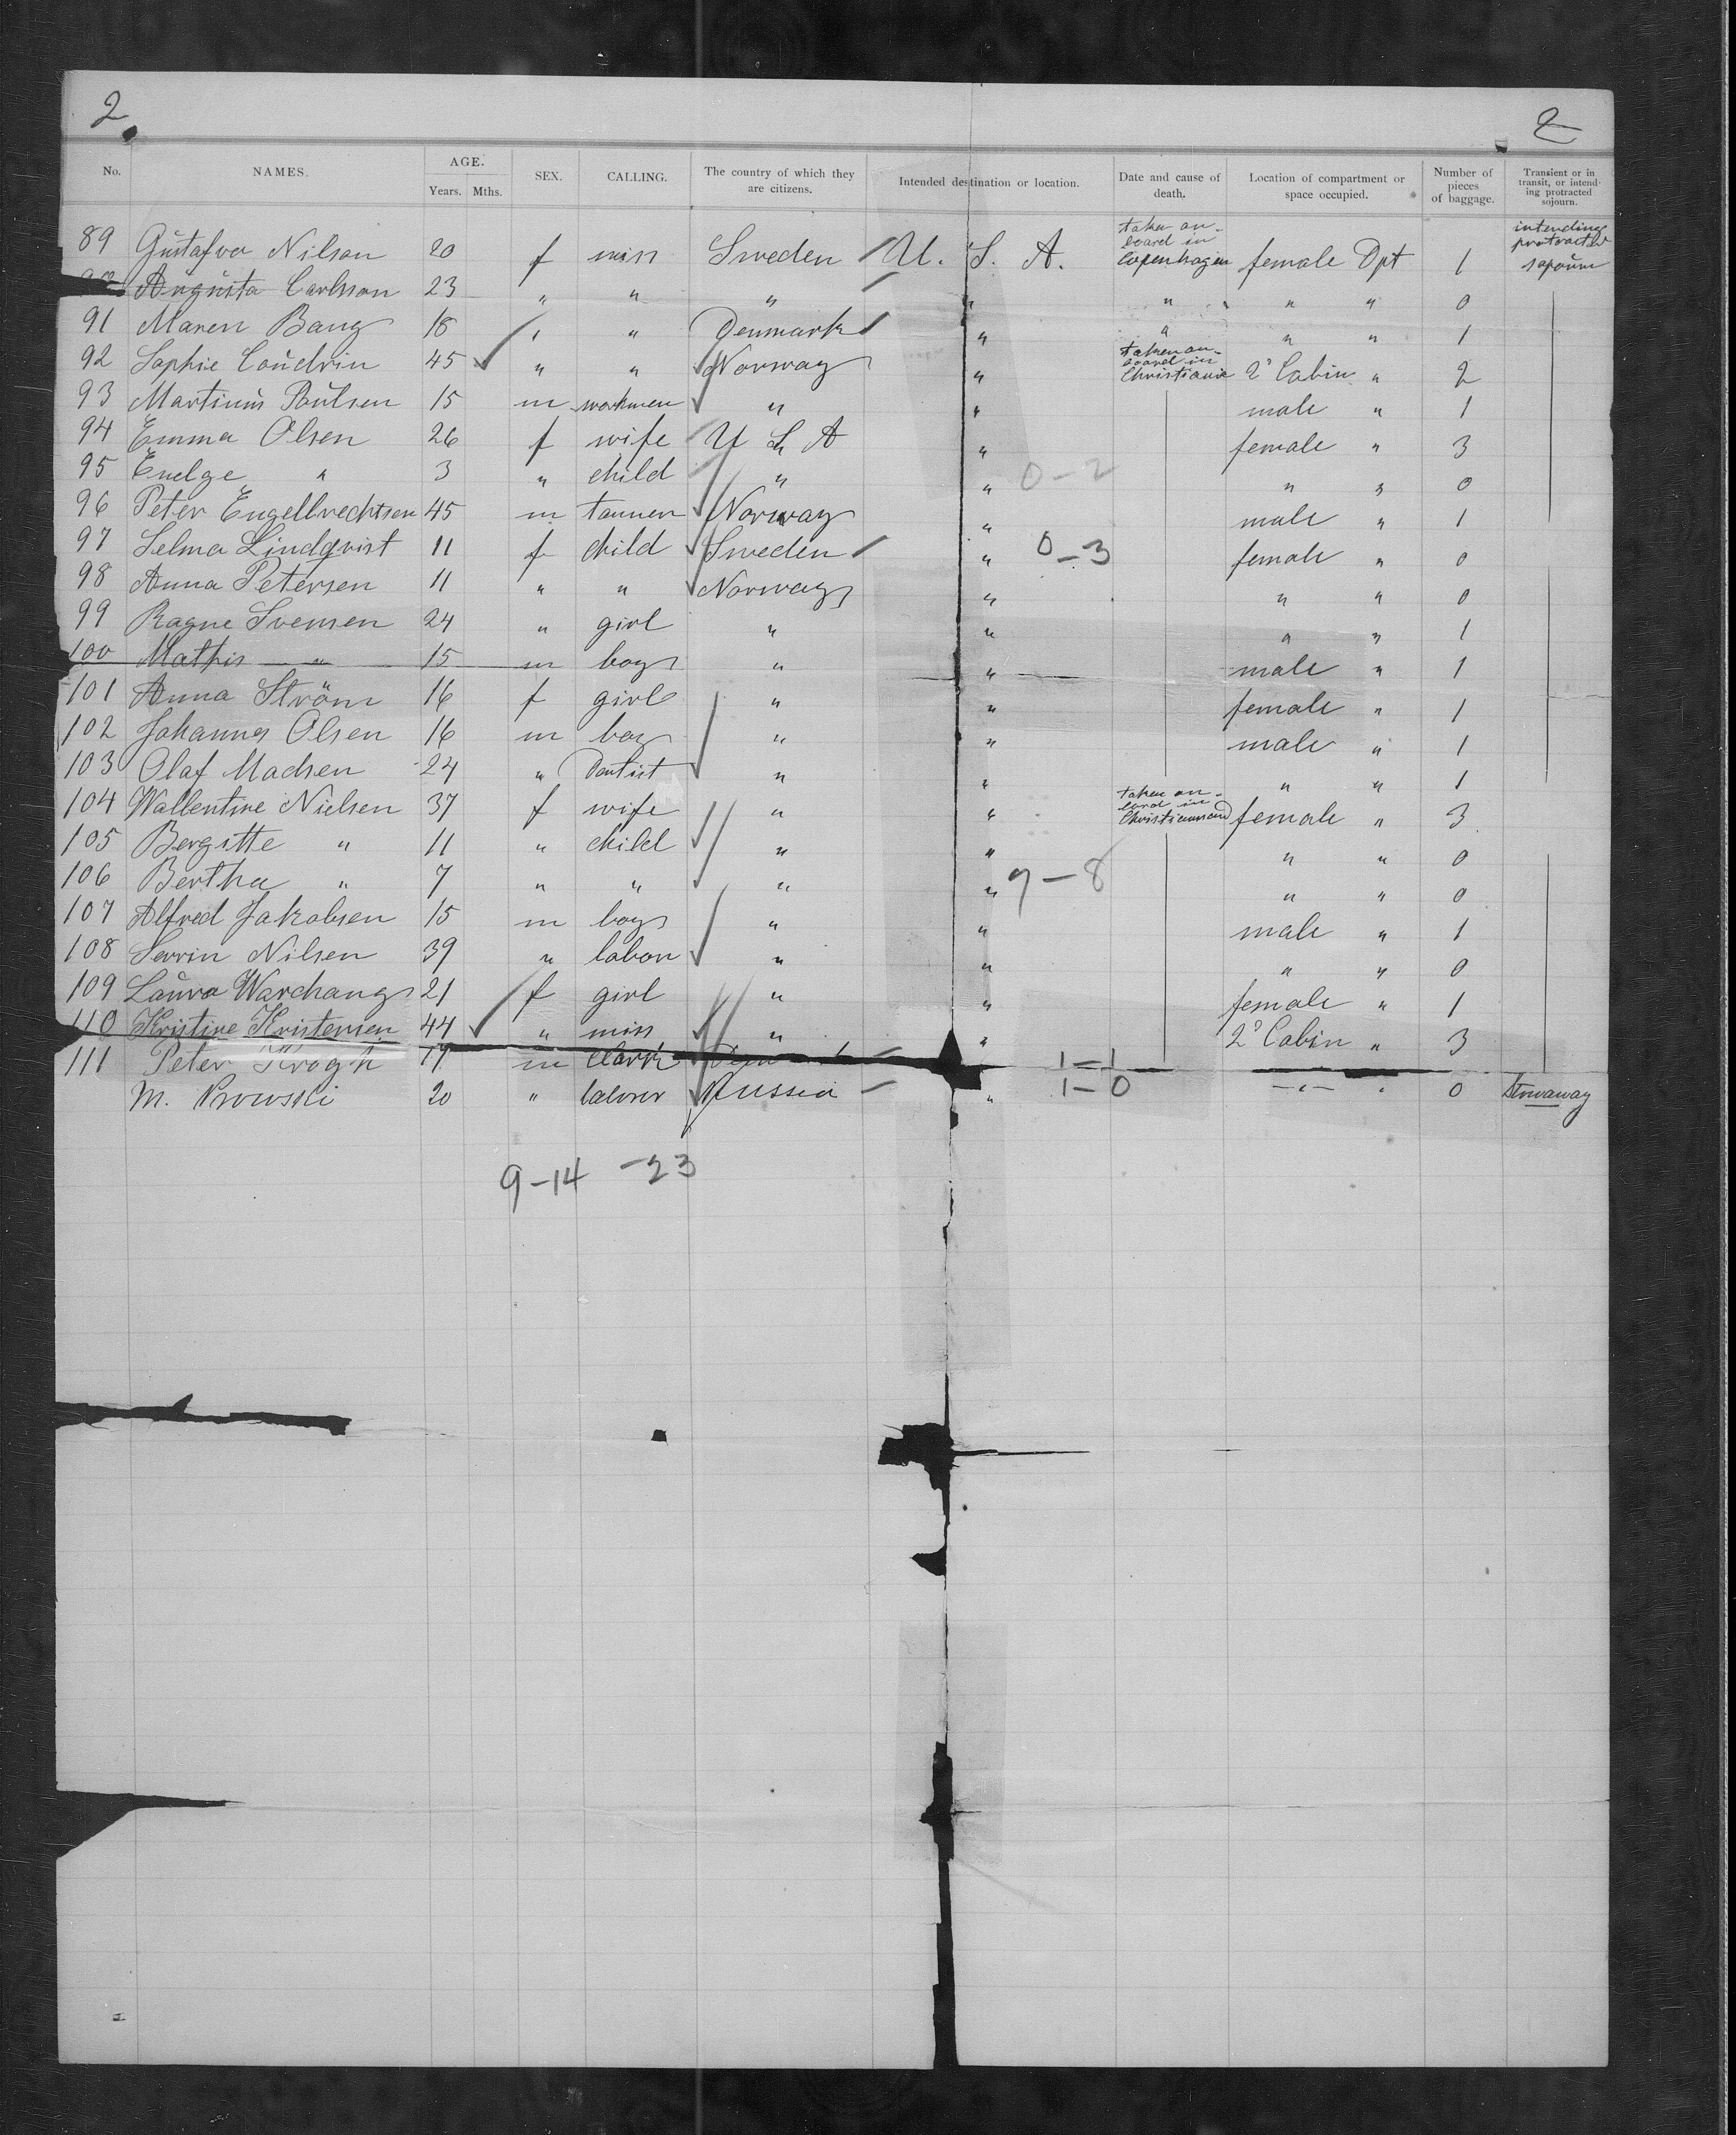 2. 2
No. NAMES. AGE. Years. Mths. SEX. CALLING. The country of which they are citizens. Intended destination or location. Date and cause of death. Location of compartment or space occupied. Number of pieces of baggage. Transient or in transit, or intending protracted sojourn.
89 Gustafva Nilson 20 f miss Sweden U. S. A. taken on board in Copenhagen female Dpt 1 intending protracted sojourn
Augusta Carlsson 23 " " " " " " " 0
91 Maren Bang 18 " " Denmark " " " " 1
92 Sophie 45 " " Norway " taken on board in Christiania 2' Cabin " 2
93 Martinus Paulsen 15 m workmen " " male " 1
94 Emma Olsen 26 f wife U S A " female " 3
95 " 3 " child " " 0-2 " " 0
96 Peter Engelbrechtsen 45 m tanner Norway " male " 1
97 Selma Lindqvist 11 f child Sweden " 0-3 female " 0
98 Anna Petersen 11 " " Norway " " " 0
99 Ragne Svensen 24 " girl " " " " 1
100 Mathis " 15 m boy " " male " 1
101 Anna Ström 16 f girl " " female " 1
102 Johannes Olsen 16 m boy " " male " 1
103 Olaf Madsen 24 " Dentist " " " " 1
104 Wallentine Nielsen 37 f wife " " taken on board in Christiansand female " 3
105 Bergitte " 11 " child " " " " 0
106 Bertha " 7 " " " " 9-8 " " 0
107 Alfred Jakobsen 15 m boy " " male " 1
108 Nilsen 39 " labor " " " " 0
109 Laura 21 f girl " " female " 1
110 Kristine Kristensen 44 " miss " " 2' Cabin " 3
111 Peter Krogh m Clark 1-1
M. 20 " laborer Russia " 1-0 -"- " 0 Stowaway
9-14 -23